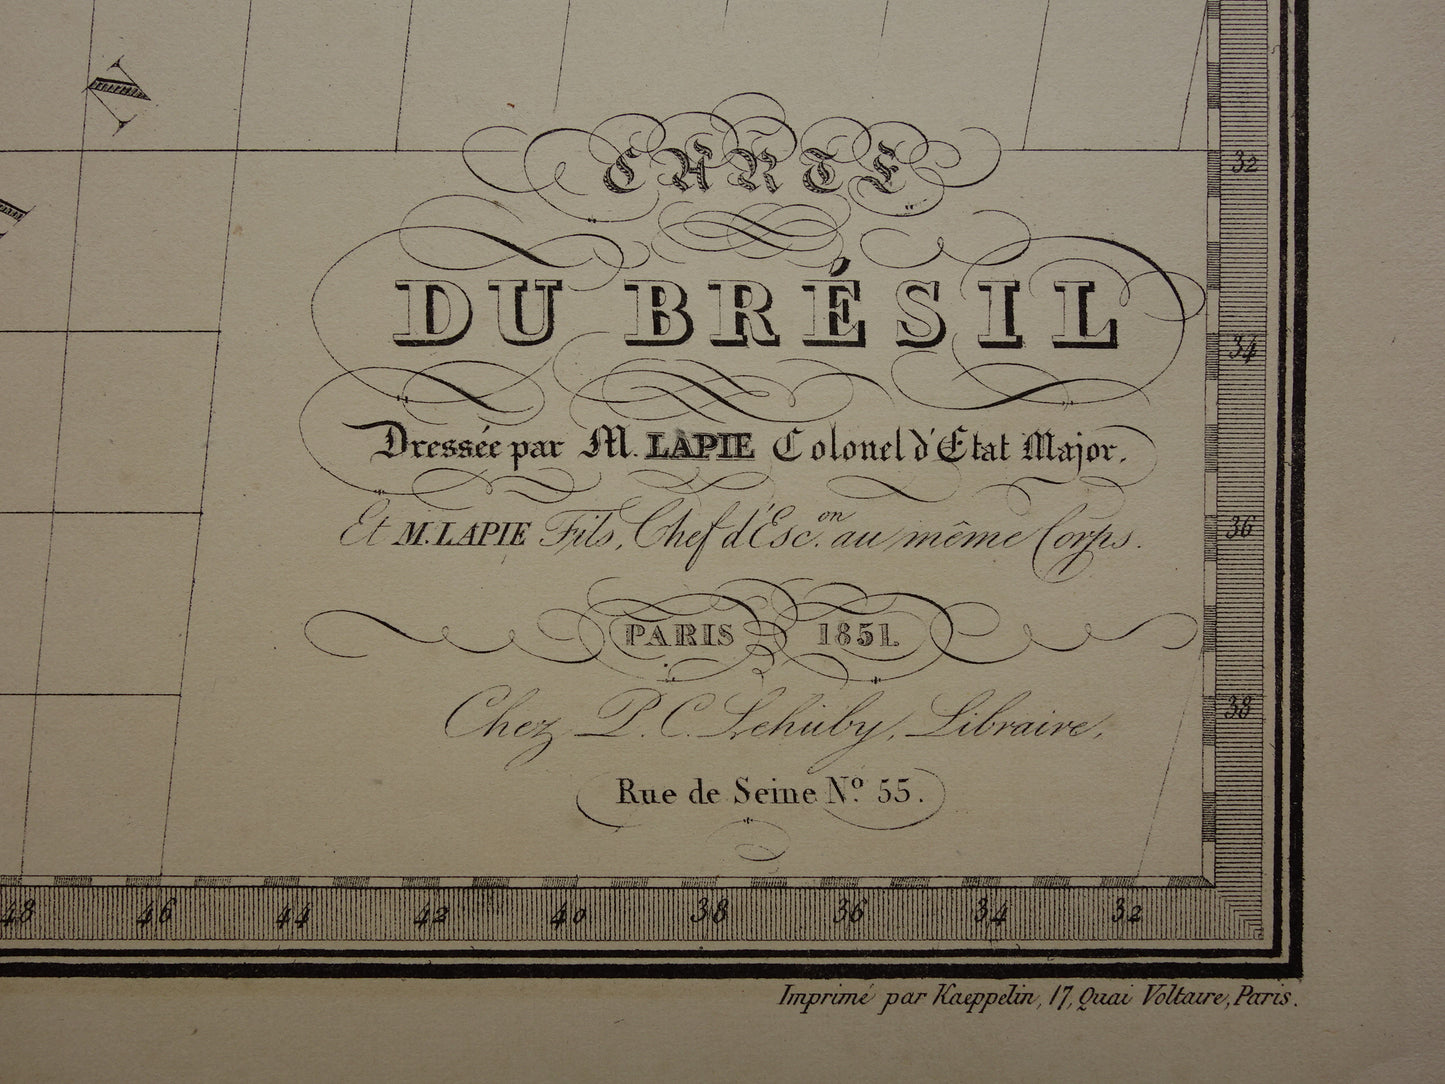 CARTE
DU BRÉSIL
Dressée par M. LAPIE Colonel d'Etat Major.
Et M. LAPIE Fils, Chef d'Esc.on au même Corps.
PARIS 1851.
Chez P. C. Lehuby, Libraire,
Rue de Seine No. 55.
32
34
36
38
48 46 44 42 40 38 36 34 32
Imprimé par Kaeppelin, 17, Quai Voltaire, Paris.